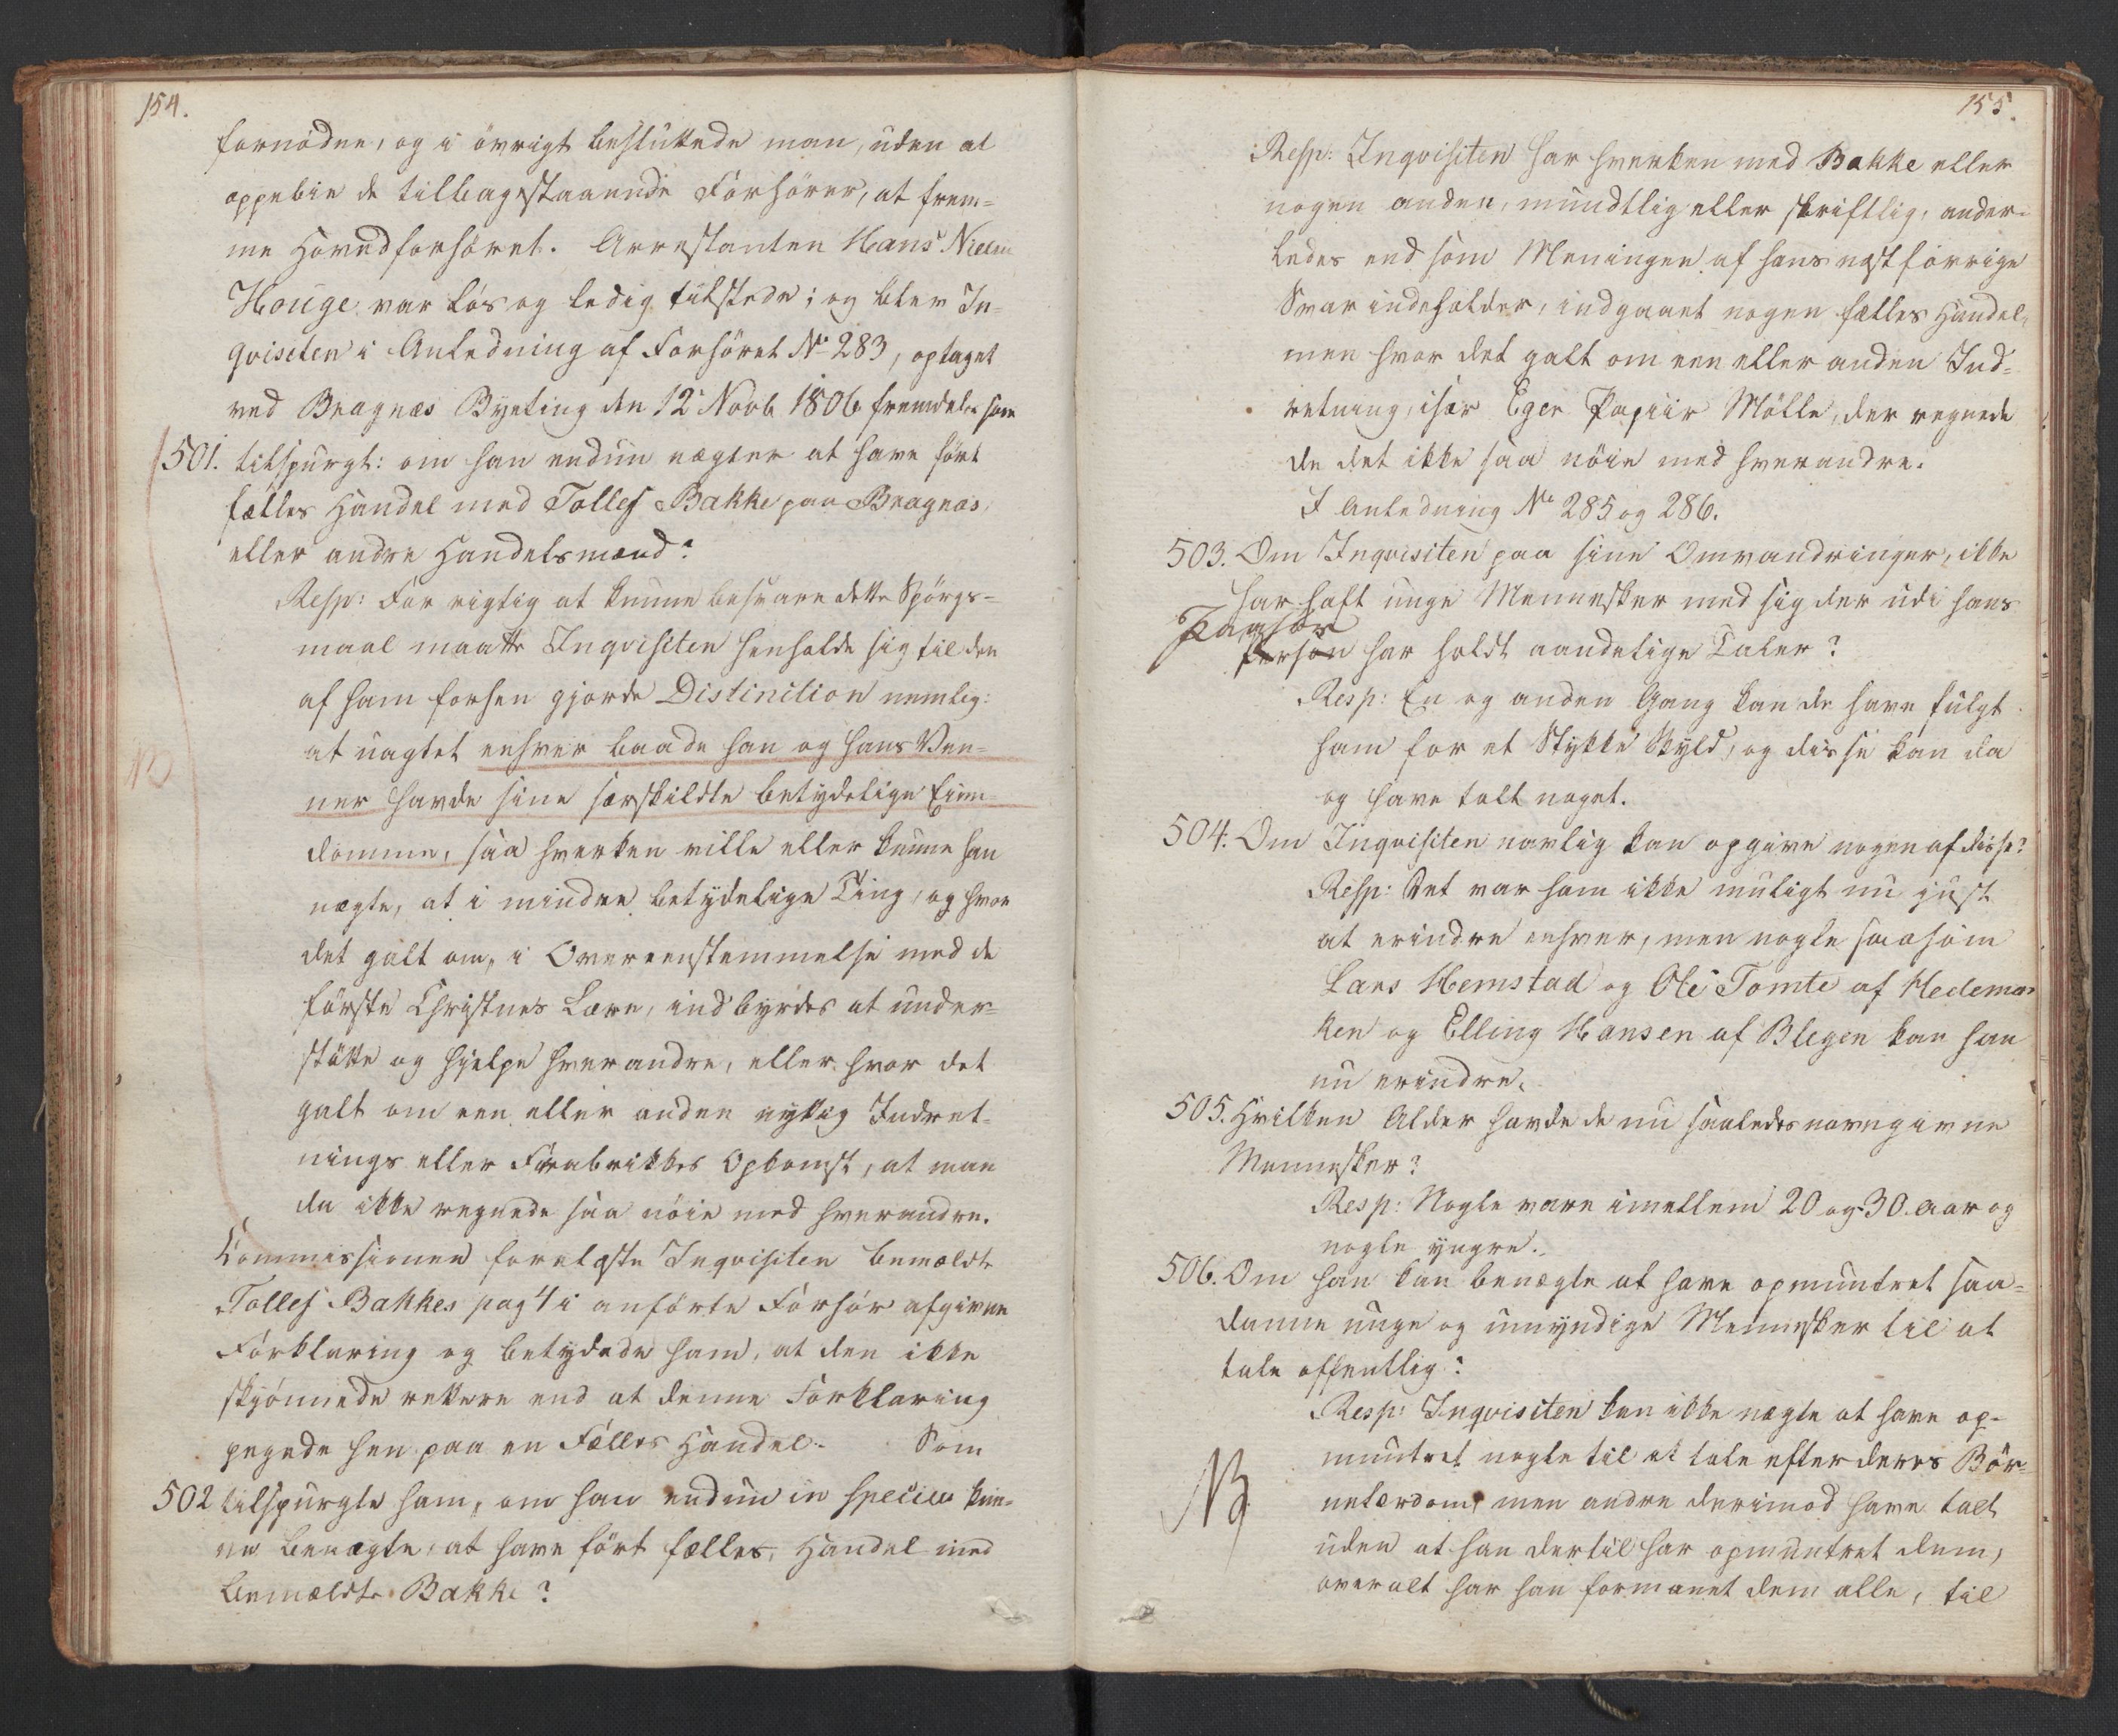 154.
fornødne, og i øvrigt besluttede man, uden at
oppebie de tilbagestaaende Forhører, at frem=
me Hovedforhøret. Arrestanten Hans Nielsen
Houge var løs og ledig tilstede; og blev In-
qvisiten i Anledning af Forhøret No 283, optaget
ved Bragnæs Byeting den 12 Novb 1806 fremdeles som
501. tilspurgt: om han endnu nægter at have ført
fælles Handel med Tollef Bakke paa Bragnæs,
eller andre Handelsmænd?
Resp: For rigtig at kunne besvare dette Spørgs=
maal maatte Inqvisiten henholde sig til den
af ham forhen gjorde Distinition nemlig:
at uagtet enhver baade han og hans Ven=
ner havde sine særskildte betydelige Eien=
NB
domme, saa hverken ville eller kunne han
nægte, at i mindre betydelige Ting, og hvor
det galt om, i Overeenstemmelse med de
første Christnes Lære, indbyrdes at under=
støtte og hjelpe hverandre, eller hvor det
galt om een eller anden nyttig Indret-
nings eller Fabrikkes Opkomst, at man
da ikke regnede saa nøie med hverandre.
Commissionen forelæste Inqvisiten bemældte
Tollef Bakkes pag 4 i anførte Forhør afgivne
Forklaring og betydede ham, at den ikke
skjønnede rettere end at denne Forklaring
pegede hen paa en Fælles Handel. Som
502 tilspurgte ham, om han endnu in specie kun-
ne benægte, at have ført fælles Handel med
bemældte Bakke?
155.
Resp: Inqvisiten har hverken med Bakke eller
nogen anden, mundtlig eller skriftlig, ander-
ledes end som Meningen af hans næstforrige
Svar indeholder, indgaaet nogen fælles Handel,
men hvor det galt om een eller anden Ind=
retning, især Eger Papiir Mølle, der regnede
de det ikke saa nøie med hverandre.
I Anledning No 285 og 286.
503. Om Inqvisiten paa sine Omvandringer, ikke
har haft unge Mennesker med sig der udi hans
Paahør
Person har holdt aandelige Taler?
Resp: En og anden Gang kan de have fulgt
ham for et Stykke Skyld, og disse kan da
og have talt noget.
504. Om Inqvisiten navnlig kan opgive nogen af disse?
Resp: Det var ham ikke muligt nu just
at erindre enhver, men nogle saasom
Lars Hemstad og Ole Tomte af Hedemar
ken og Elling Hansen af Blegen kan han
nu erindre.
505. Hvilken Alder havde de nu saaledes navngivne
Mennesker?
Resp: Nogle vare imellem 20 og 30 aar og
nogle yngre.
506. Om han kan benægte at have opmuntret saa=
danne unge og umyndige Mennesker til at
tale offentlig?
Resp: Inqvisiten kan ikke nægte at have op-
muntret nogle til at tale efter deres Bør-
NB
nelærdom, men andre derimod have talt
uden at han dertil har opmuntret dem,
overalt har han formanet dem alle, til